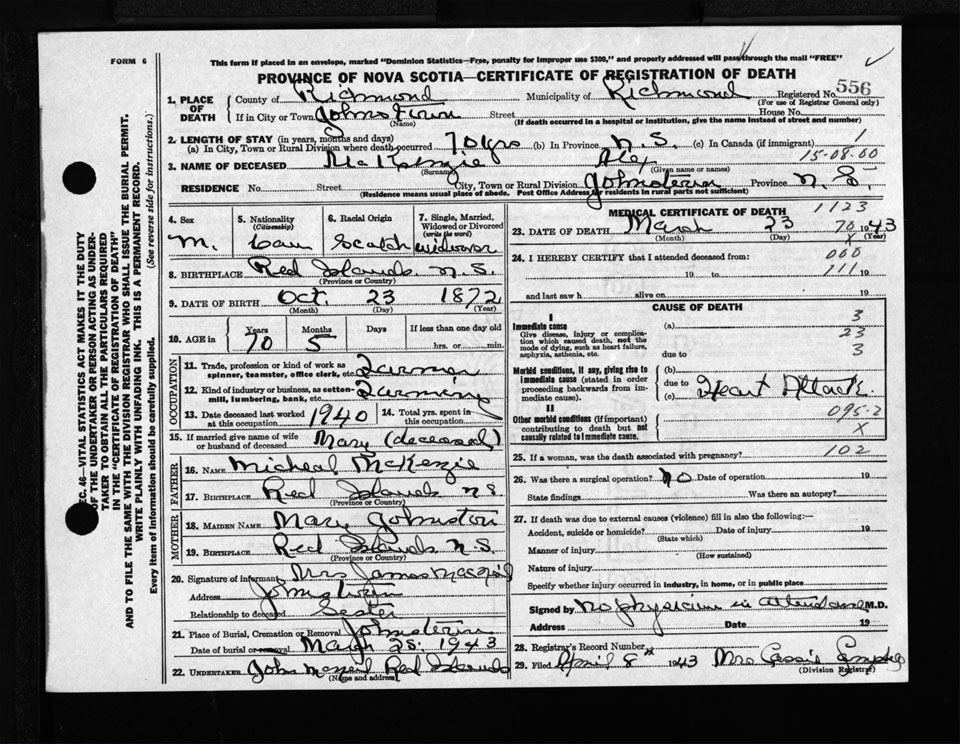 FORM 6
This form if placed in an envelope, marked "Dominion Statistics—Free, penalty for improper use $300," and properly addressed will pass through the mail "FREE"
PROVINCE OF NOVA SCOTIA—CERTIFICATE OF REGISTRATION OF DEATH
Registered No. 556
(For use of Registrar General only)
1. PLACE OF DEATH
County of Richmond Municipality of Richmond
If in City or Town Johnstown Street House No.
(Name) (If death occurred in a hospital or institution, give the name instead of street and number)
2. LENGTH OF STAY (in years, months and days)
(a) In City, Town or Rural Division where death occurred 70 yrs (b) In Province N.S. (c) In Canada (if immigrant) 1
15-08.00
3. NAME OF DECEASED McKenzie Alex
(Surname) (Given name or names)
RESIDENCE No. Street City, Town or Rural Division Johnstown Province N.S.
(Residence means usual place of abode. Post Office Address for residents in rural parts not sufficient)
4. Sex M.
5. Nationality (Citizenship) Can
6. Racial Origin Scotch
7. Single, Married, Widowed or Divorced (write the word) widower
8. BIRTHPLACE Red Islands N.S.
(Province or Country)
9. DATE OF BIRTH Oct. 23 1872
(Month) (Day) (Year)
10. AGE in Years 70 Months 5 Days If less than one day old hrs. or min.
OCCUPATION
11. Trade, profession or kind of work as spinner, teamster, office clerk, etc. Farmer
12. Kind of industry or business, as cotton-mill, lumbering, bank, etc. Farming
13. Date deceased last worked at this occupation 1940
14. Total yrs. spent in this occupation
15. If married give name of wife or husband of deceased Mary (deceased)
FATHER
16. NAME Micheal McKenzie
17. BIRTHPLACE Red Islands N.S.
(Province or Country)
MOTHER
18. MAIDEN NAME Mary Johnston
19. BIRTHPLACE Red Islands N.S.
(Province or Country)
20. Signature of informant Mrs James MacNeil
Address Johnstown
Relationship to deceased Sester
21. Place of Burial, Cremation or Removal Johnstown
Date of burial or removal March 25. 1943
22. UNDERTAKER John McNeil Red Islands
(Name and address)
MEDICAL CERTIFICATE OF DEATH 1123
23. DATE OF DEATH March 23 1943
(Month) (Day) (Year)
70
X
24. I HEREBY CERTIFY that I attended deceased from:
000
19 to 111 19
and last saw h alive on 19
CAUSE OF DEATH
I
Immediate cause
Give disease, injury or complication which caused death, not the mode of dying, such as heart failure, asphyxia, asthenia, etc.
(a) 3
23
due to 3
Morbid conditions, if any, giving rise to immediate cause (stated in order proceeding backwards from immediate cause).
(b)
due to
(c) Heart Attack.
II
Other morbid conditions (if important) contributing to death but not causally related to immediate cause.
095-2
X
25. If a woman, was the death associated with pregnancy? 102
26. Was there a surgical operation? no Date of operation 19
State findings Was there an autopsy?
27. If death was due to external causes (violence) fill in also the following:—
Accident, suicide or homicide? Date of injury 19
(State which)
Manner of injury
(How sustained)
Nature of injury
Specify whether injury occurred in industry, in home, or in public place
Signed by no physician in attendance M.D.
Address Date 19
28. Registrar's Record Number
29. Filed April 8th 1943 Mrs Cassie
(Division Registrar)
SEC. 46—VITAL STATISTICS ACT MAKES IT THE DUTY OF THE UNDERTAKER OR PERSON ACTING AS UNDERTAKER TO OBTAIN ALL THE PARTICULARS REQUIRED IN THE "CERTIFICATE OF REGISTRATION OF DEATH" AND TO FILE THE SAME WITH THE DIVISION REGISTRAR WHO SHALL ISSUE THE BURIAL PERMIT.
WRITE PLAINLY WITH UNFADING INK. THIS IS A PERMANENT RECORD.
Every item of information should be carefully supplied. (See reverse side for instructions.)